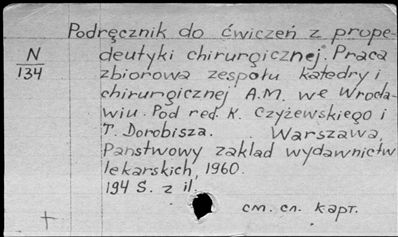 Podręcznik do ćwiczeń z prope-
deutyki chirurgicznej. Praca
N
134
zbiorowa zespołu katedry i
chirurgicznej A.M. we Wrocła-
wiu. Pod red. K. Czyżewskiego i
T. Dorobisza. Warszawa,
Państwowy zakład wydawnictw
lekarskich, 1960.
194 S. z il.
см. сл. карт.